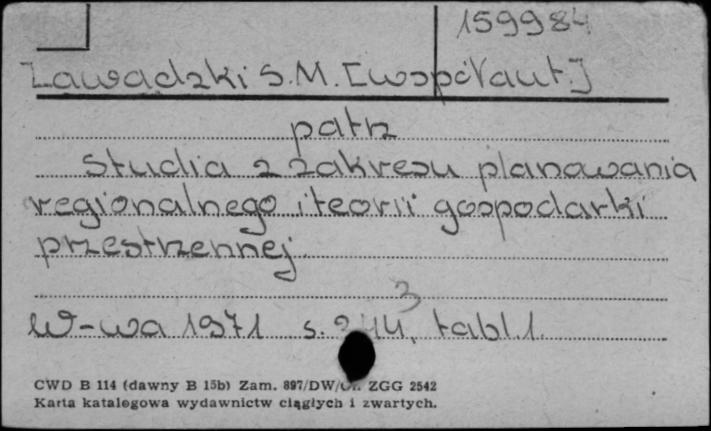 159984
Zawadzki S.M. [współaut]
patrz
Studia z zakresu planowania
regionalnego i teorii gospodarki
przestrzennej.
3
W-wa 1971 s. 244, tabl 1.
CWD B 114 (dawny B 15b) Zam. 897/DW/ ZGG 2542
Karta katalogowa wydawnictw ciągłych i zwartych.